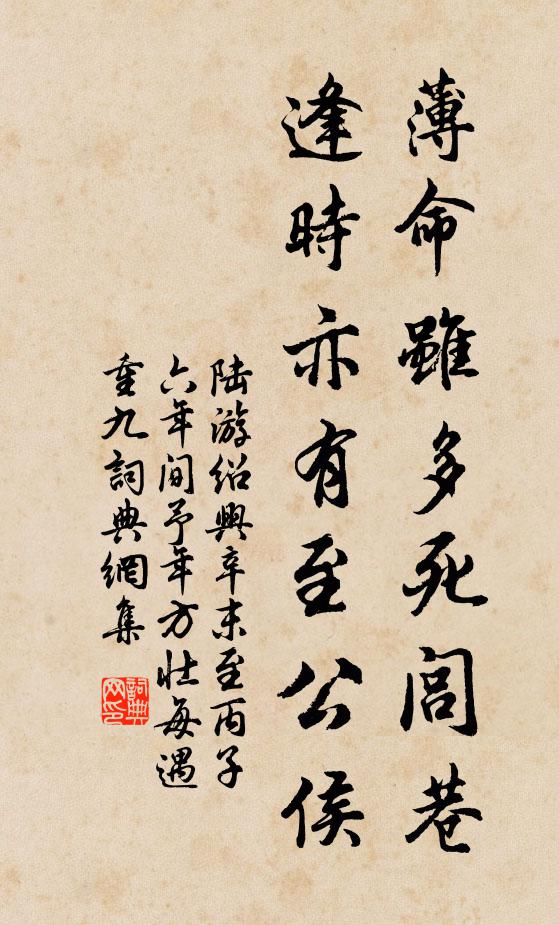 薄命雖多死閭巷
逢時亦有至公侯
陸游紹興辛未至丙子
六年間予年方壯每遇
重九詞典網集
詞典
网印